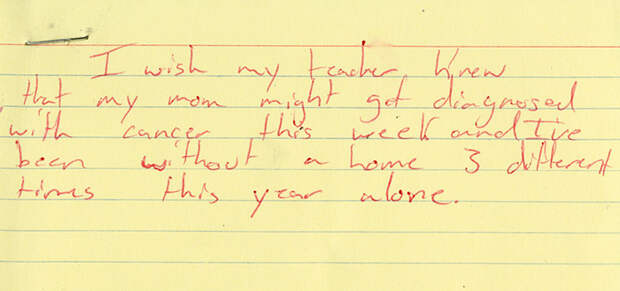 I wish my teacher knew
that my mom might get diagnosed
with cancer this week and I've
been without a home 3 different
times this year alone.